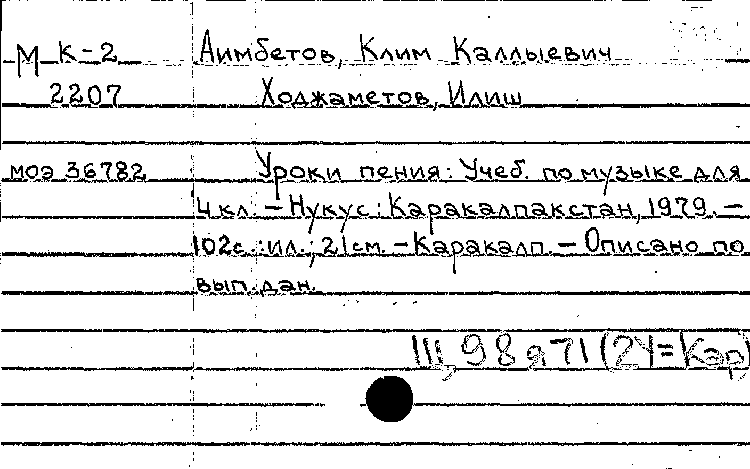 М К-2 Аимбетов, Клим Каллыевич
2207 Ходжаметов, Илиш
МОЭ 36782 Уроки пения: Учеб. по музыке для
4 кл. – Нукус: Каракалпакстан, 1979. –
102с.: ил.; 21см. – Каракалп. – Описано по
вып. дан.
Щ, 98 я 71 (2У=Кар)